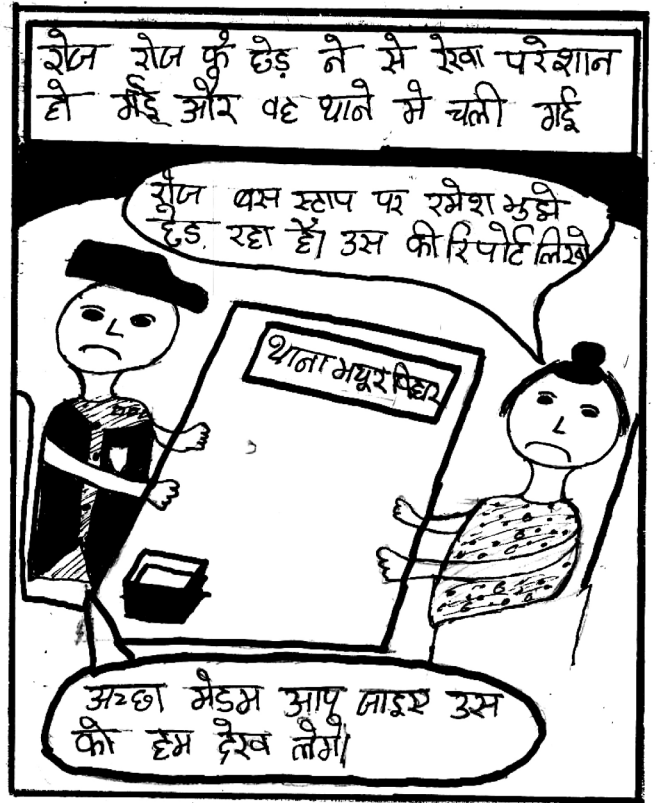 रोज रोज के छेड़ ने से रेखा परेशान
हो गई और वह थाने मे चली गई
रोज बस स्टाप पर रमेश मुझे
छेड़ रहा है। उस की रिपोर्ट लिखो
थाना मयूर विहार
अच्छा मेडम आप जाइए उस
को हम देख लेगें।